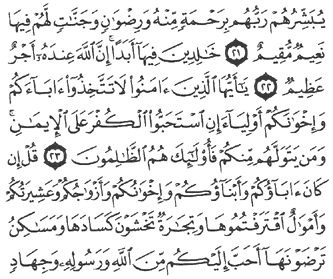 يُبَشِّرُهُمْ رَبُّهُم بِرَحْمَةٍ مِّنْهُ وَرِضْوَٰنٍ وَجَنَّٰتٍ لَّهُمْ فِيهَا
نَعِيمٌ مُّقِيمٌ ٢١ خَٰلِدِينَ فِيهَآ أَبَدًا ۚ إِنَّ ٱللَّهَ عِندَهُۥٓ أَجْرٌ
عَظِيمٌ ٢٢ يَٰٓأَيُّهَا ٱلَّذِينَ ءَامَنُوا۟ لَا تَتَّخِذُوٓا۟ ءَابَآءَكُمْ
وَإِخْوَٰنَكُمْ أَوْلِيَآءَ إِنِ ٱسْتَحَبُّوا۟ ٱلْكُفْرَ عَلَى ٱلْإِيمَٰنِ ۚ
وَمَن يَتَوَلَّهُم مِّنكُمْ فَأُو۟لَٰٓئِكَ هُمُ ٱلظَّٰلِمُونَ ٢٣ قُلْ إِن
كَانَ ءَابَآؤُكُمْ وَأَبْنَآؤُكُمْ وَإِخْوَٰنُكُمْ وَأَزْوَٰجُكُمْ وَعَشِيرَتُكُمْ
وَأَمْوَٰلٌ ٱقْتَرَفْتُمُوهَا وَتِجَٰرَةٌ تَخْشَوْنَ كَسَادَهَا وَمَسَٰكِنُ
تَرْضَوْنَهَآ أَحَبَّ إِلَيْكُم مِّنَ ٱللَّهِ وَرَسُولِهِۦ وَجِهَادٍ